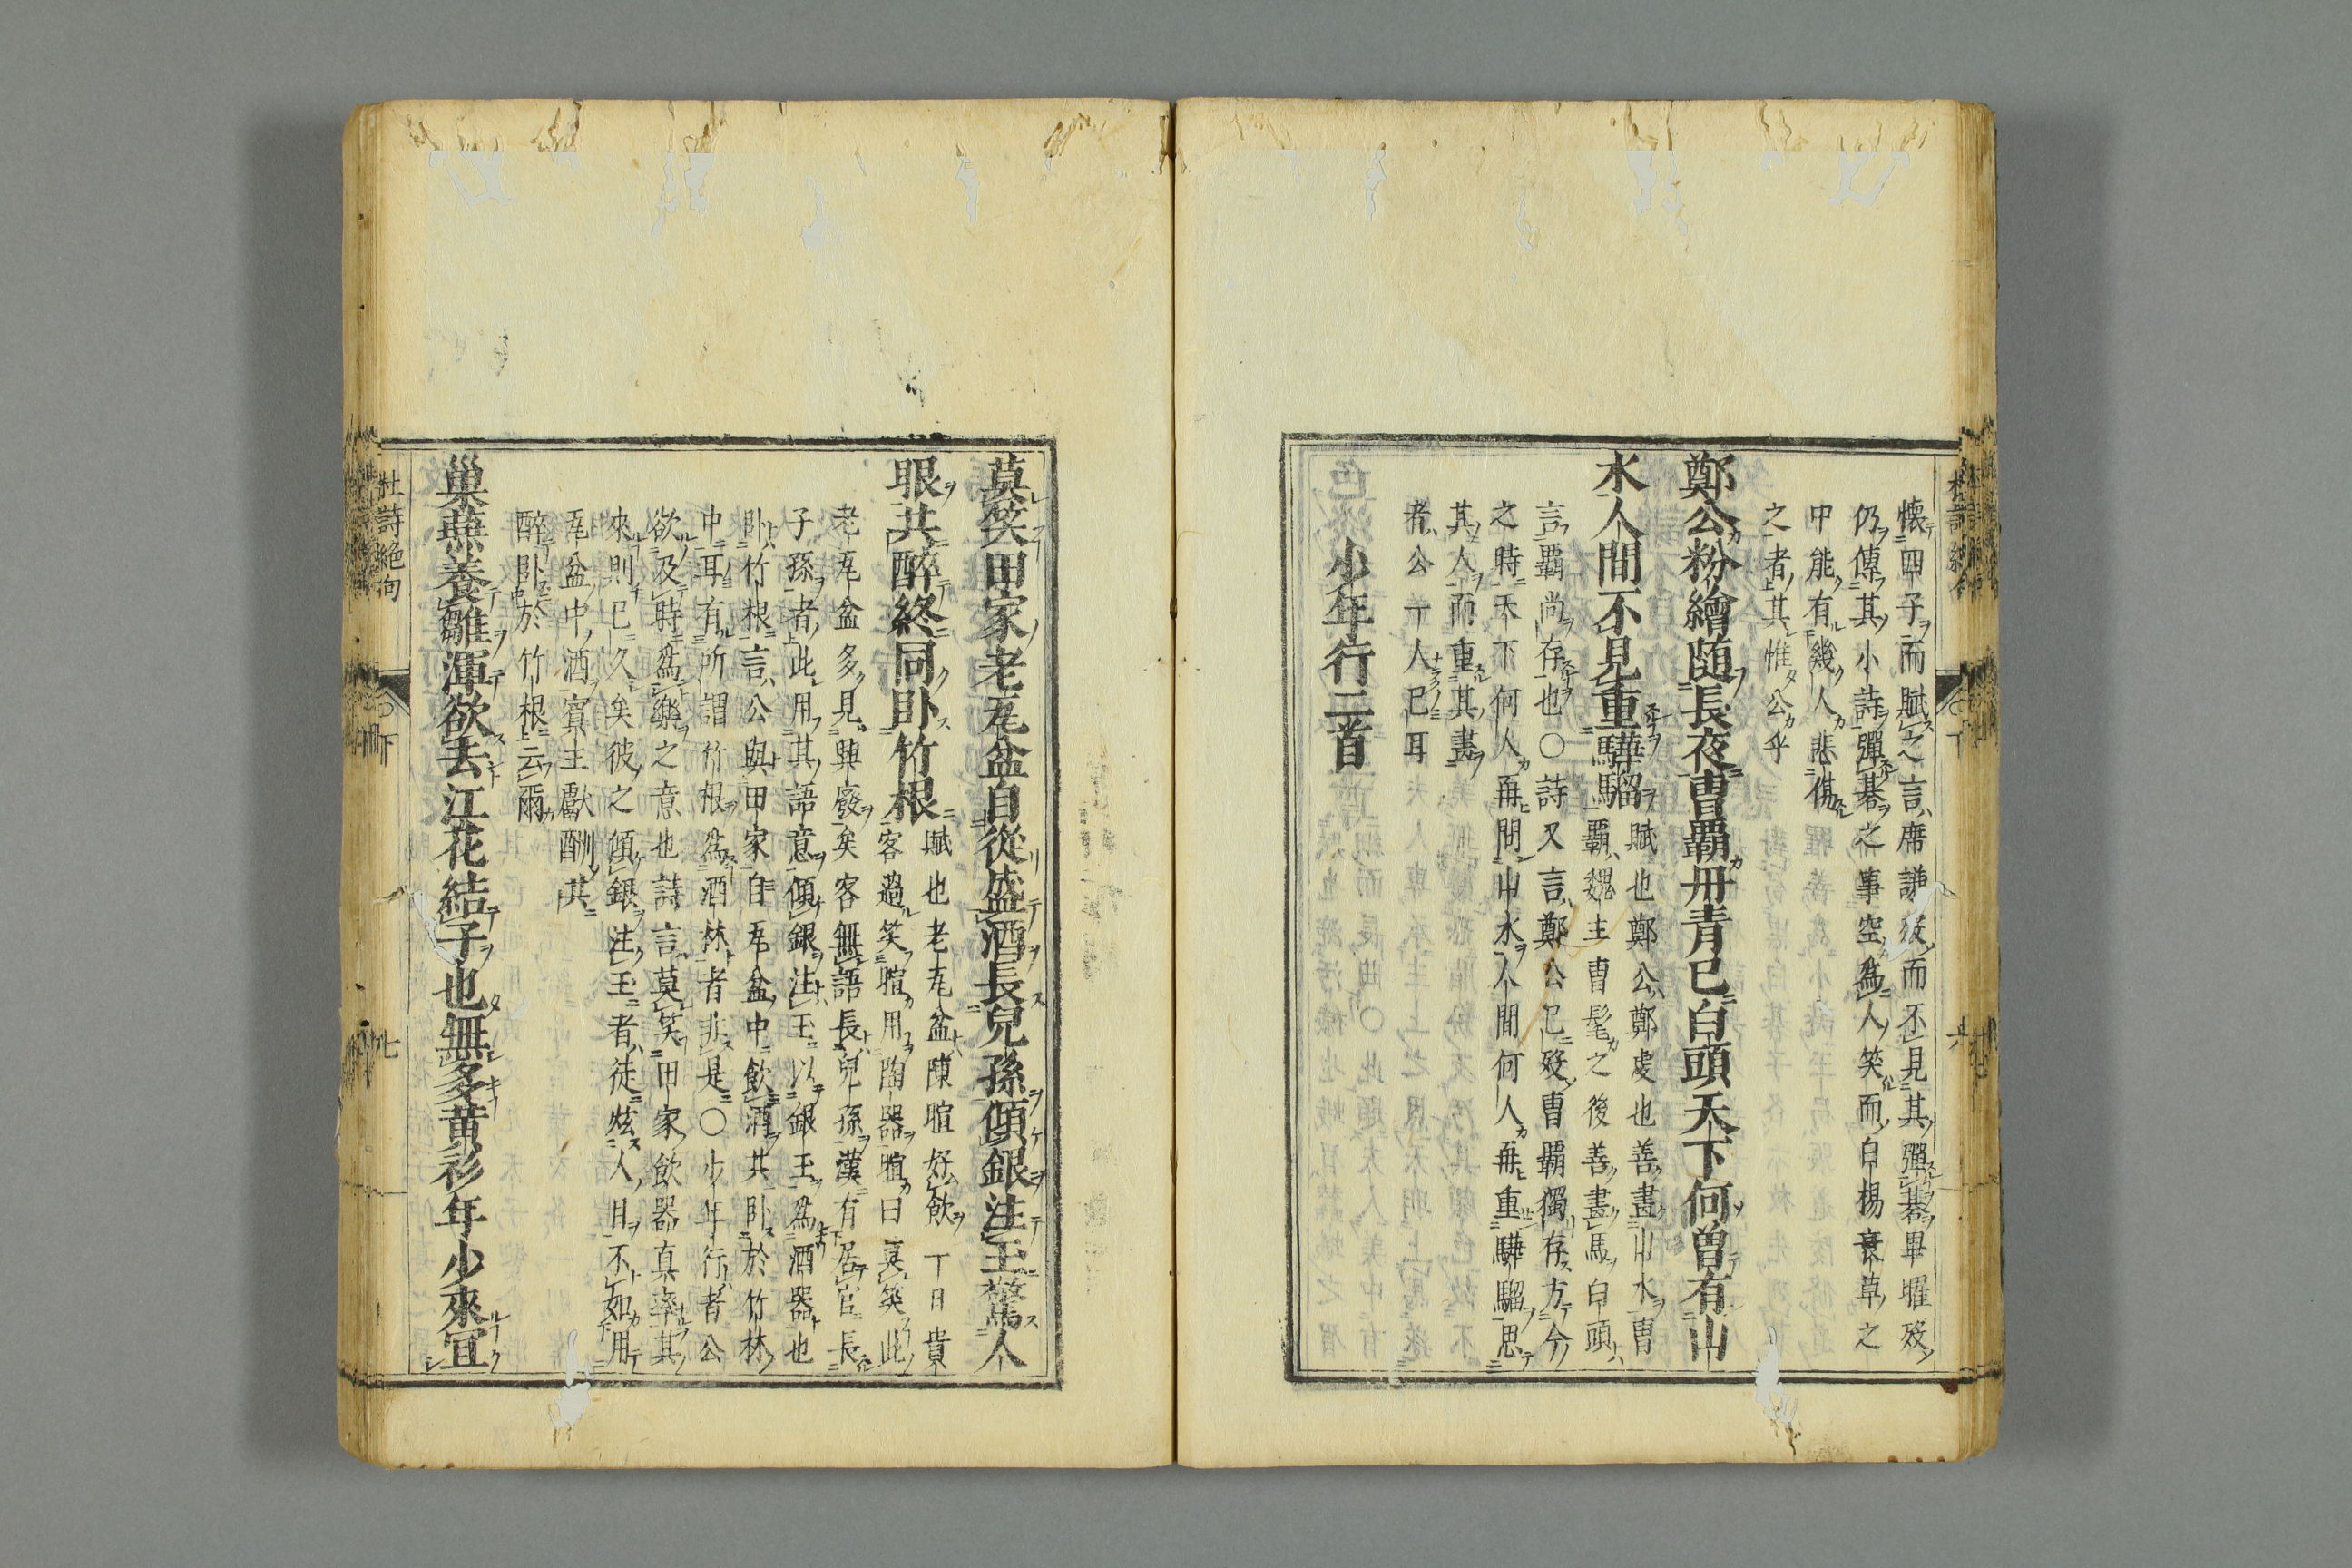 懷四子而賦之言席謙後而不見其彈棊畢曜歿
仍傳其小詩彈棊之事空爲人笑而白楊衰草之
中能有幾人悲傷
之者其惟公乎
鄭公粉繪随長夜曹覇丹青已白頭天下何曽有山
水人間不見重驊騮
賦也鄭公鄭虔也善畫山水曹
覇魏主曹髦之後善畫馬白頭
言覇尚存也○詩又言鄭公已歿曹覇獨存方今
之時天下何人再問山水人間何人再重驊騮思
其人而重其畫
者公一人已耳
少年行二首
莫笑田家老瓦盆自從盛酒長兒孫傾銀注玉驚人
眼共醉終同卧竹根
賦也老瓦盆陳暄好飲一日貴
客過笑暄用陶器暄曰莫笑此
老瓦盆多見興廢矣客無語長兒孫漢有居官長
子孫者此用其語意傾銀注玉以銀玉爲酒器也
卧竹根言公與田家自瓦盆中飲酒共卧於竹林
中耳有所謂竹根爲酒杯者非是○少年行者公
欲及時爲樂之意也詩言莫笑田家飲器真率其
來則已久矣彼之傾銀注玉者徒炫人目不如用
瓦盆中酒賓主獻酬共
醉卧於竹根云爾
巢燕養雛渾欲去江花結子也無多黄衫年少來宜
杜詩絶句
下
七